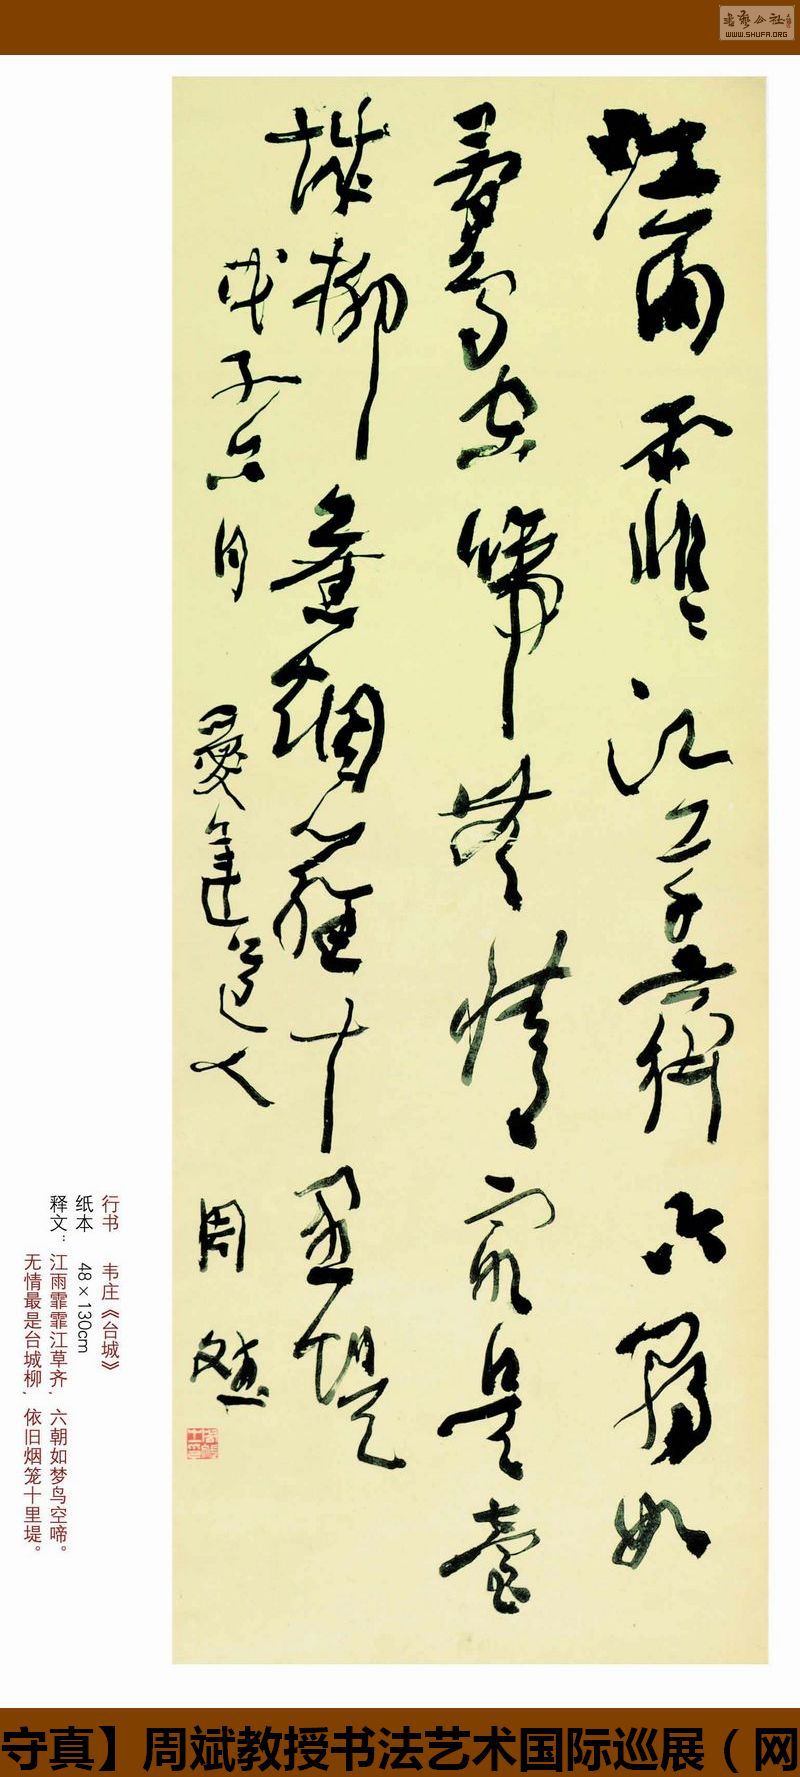 書藝公社
WWW.SHUFA.ORG
江雨霏霏江草齊六朝如
夢鳥空啼無情最是臺
城柳依舊烟籠十里堤
戊子六月愛蓮道人周斌
行书 韦庄《台城》
纸本 48×130cm
释文：江雨霏霏江草齐，六朝如梦鸟空啼。
无情最是台城柳，依旧烟笼十里堤。
守真】周斌教授书法艺术国际巡展（网